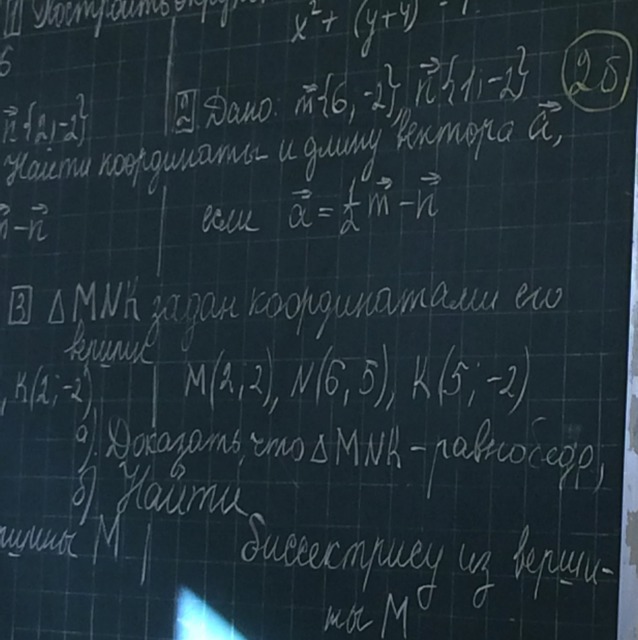 1 Построить
x² + (y+4)
6
n⃗{2;-2}
2 Дано: m⃗{6;-2} n⃗{1;-2}
Найти координаты и длину вектора a⃗,
- n⃗
если a⃗ = 1/2 m⃗ - n⃗
3 △MNK задан координатами его
вершин
, K(2;-2),
M(2;2), N(6;5), K(5;-2)
а). Доказать, что △MNK - равнобедр,
б) Найти
M
биссектрису из верши-
ны M